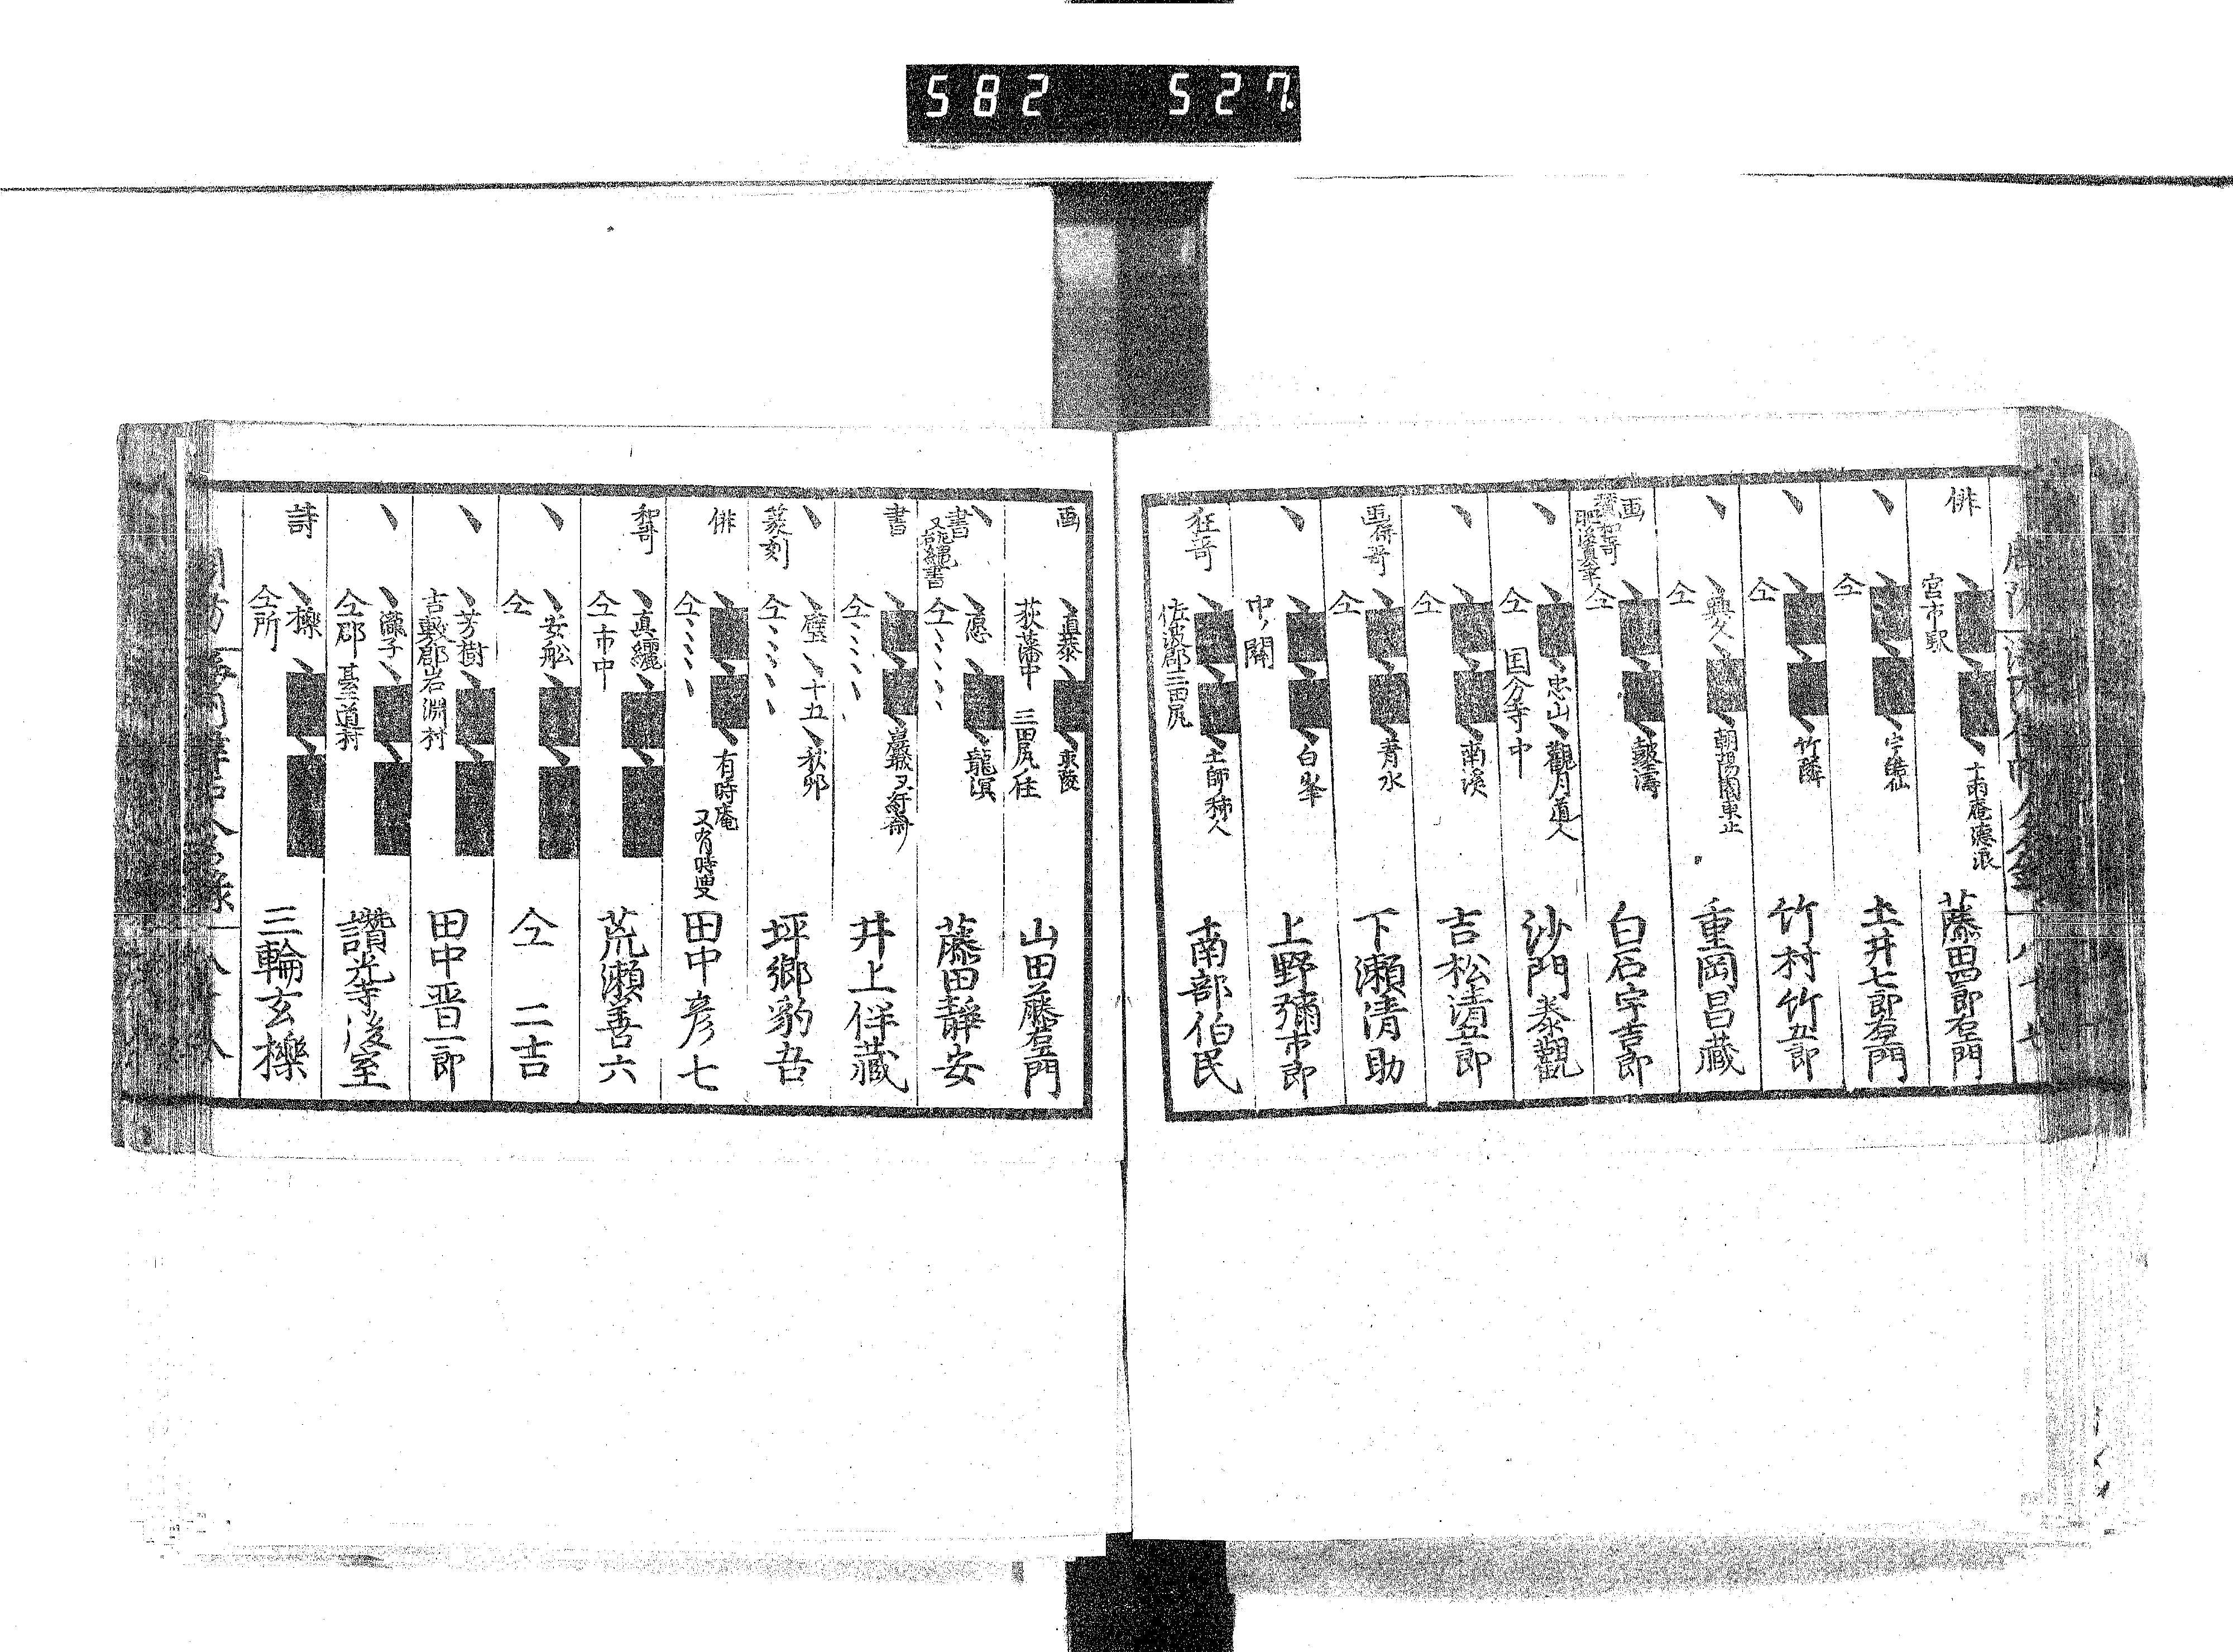 582 527
俳
宮市駅
十雨庵徳浪
藤田四郎右衛門
〵
仝
土井七郎右衛門
〵
仝
竹隣
竹村竹五郎
〵
仝
興久
朝陽閣東止
重岡昌蔵
画
讃和哥
仝
皷濤
白石宇吉郎
〵
仝 国分寺中
忠山 觀月道人
沙門泰觀
〵
仝
南溪
吉松清五郎
画俳哥
仝
青水
下瀬清助
〵
中ノ関
白峯
上野彌市郎
狂哥
佐波郡三田尻
土師秭人
南部伯民
画
道泰 東陵
萩藩中 三田尻住
山田藤右衛門
書
仝〻〻〻
龍溟
藤田静安
書
仝〻〻〻
巖
井上伴蔵
〵
篆刻
璧 十五 秋卯
仝〻〻〻
坪郷豹吾
俳
仝〻〻〻
有時庵
又有時叟
田中彦七
和哥
真
仝市中
荒瀬善六
〵
安舩
仝
仝 二吉
〵
芳樹
吉敷郡岩淵村
田中晋一郎
〵
仝郡 基道村
讃光寺後室
詩
櫟
仝所
三輪玄櫟